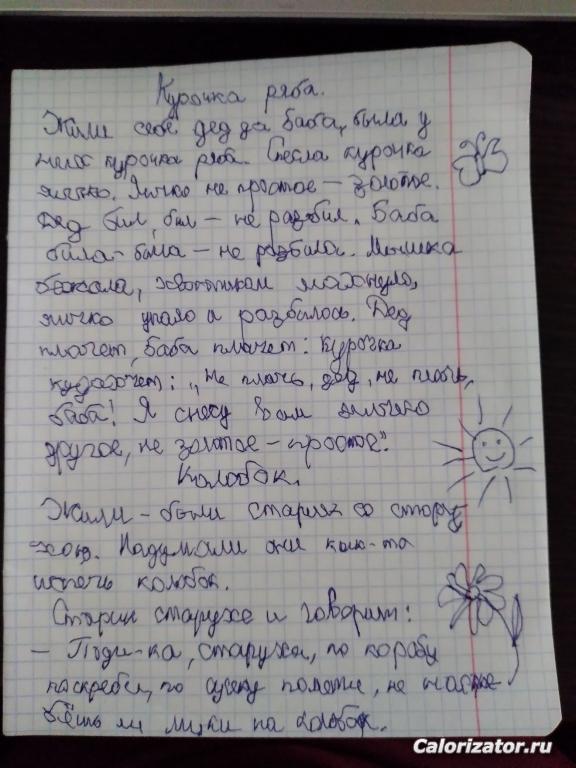 Курочка ряба.
Жили себе дед да баба, была у
них курочка ряба. Снесла курочка
яичко. Яичко не простое - золотое.
Дед бил, бил - не разбил. Баба
била-била - не разбила. Мышка
бежала, хвостиком махнула,
яичко упало и разбилось. Дед
плачет, баба плачет: курочка
кудахчет: "Не плачь, дед, не плачь,
баба! Я снесу вам яичко
другое, не золотое - простое".
Колобок.
Жили-были старик со стару
хою. Надумали они как-то
испечь колобок.
Старик старухе и говорит:
- Поди-ка, старуха, по коробу
поскреби, по сусеку помети, не
ли муки на колобок.
Calorizator.ru